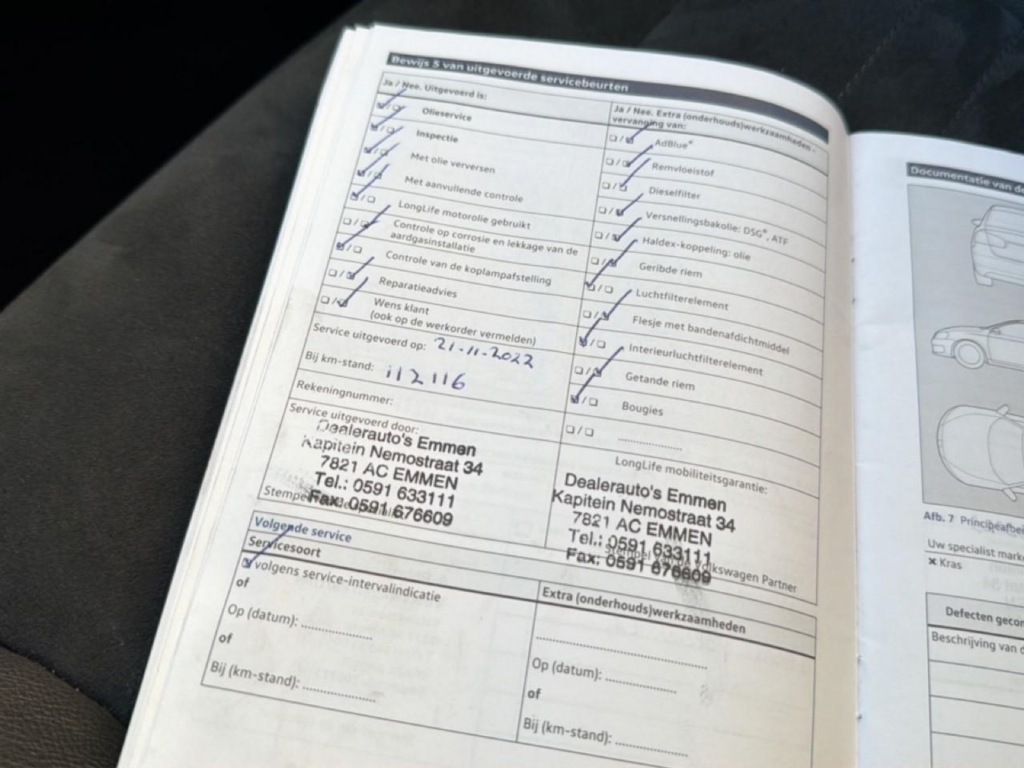 Bewijs 5 van uitgevoerde servicebeurten
Ja / Nee. Uitgevoerd is:
Olieservice
Inspectie
Met olie verversen
Met aanvullende controle
LongLife motorolie gebruikt
Controle op corrosie en lekkage van de
aardgasinstallatie
Controle van de koplampafstelling
Reparatieadvies
Wens klant
(ook op de werkorder vermelden)
Service uitgevoerd op: 21-11-2022
Bij km-stand: 112116
Rekeningnummer:
Service uitgevoerd door:
Dealerauto's Emmen
Kapitein Nemostraat 34
7821 AC EMMEN
Tel.: 0591 633111
Fax: 0591 676609
Ja / Nee. Extra (onderhouds)werkzaamheden -
vervanging van:
AdBlue®
Remvloeistof
Dieselfilter
Versnellingsbakolie: DSG®, ATF
Haldex-koppeling: olie
Geribde riem
Luchtfilterelement
Flesje met bandenafdichtmiddel
Interieurluchtfilterelement
Getande riem
Bougies
LongLife mobiliteitsgarantie:
Dealerauto's Emmen
Kapitein Nemostraat 34
7821 AC EMMEN
Tel.: 0591 633111
Fax: 0591 676609
Stempel Volkswagen Partner
Volgende service
Servicesoort
volgens service-intervalindicatie
of
Op (datum):
of
Bij (km-stand):
Extra (onderhouds)werkzaamheden
Op (datum):
of
Bij (km-stand):
Documentatie van
Afb. 7
Uw specialist
× Kras
Defecten
Beschrijving van